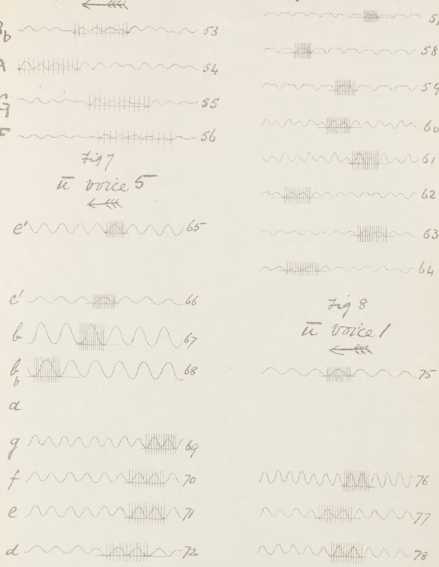 b 53
A 54
55
F 56
Fig 7
ū voice 5
e' 65
c' 66
b 67
b b 68
d
g 69
f 70
e 71
d 72
58
59
60
61
62
63
64
Fig 8
ū voice 1
75
76
77
78